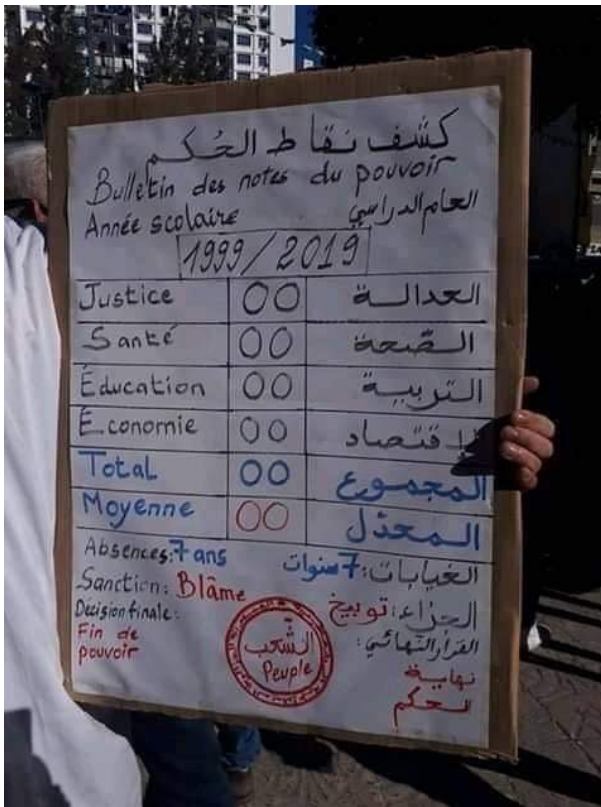 كشف نقاط الحُكم
Bulletin des notes du pouvoir
Année scolaire العام الدراسي
1999/2019
Justice 00 العدالة
Santé 00 الصّحة
Éducation 00 التربية
Économie 00 الإقتصاد
Total 00 المجموع
Moyenne 00 المعدّل
Absences: 7 ans الغيابات: 7 سنوات
Sanction: Blâme الجزاء: توبيخ
Décision finale: القرار النهائي:
Fin de pouvoir نهاية الحكم
الشّعب
Peuple